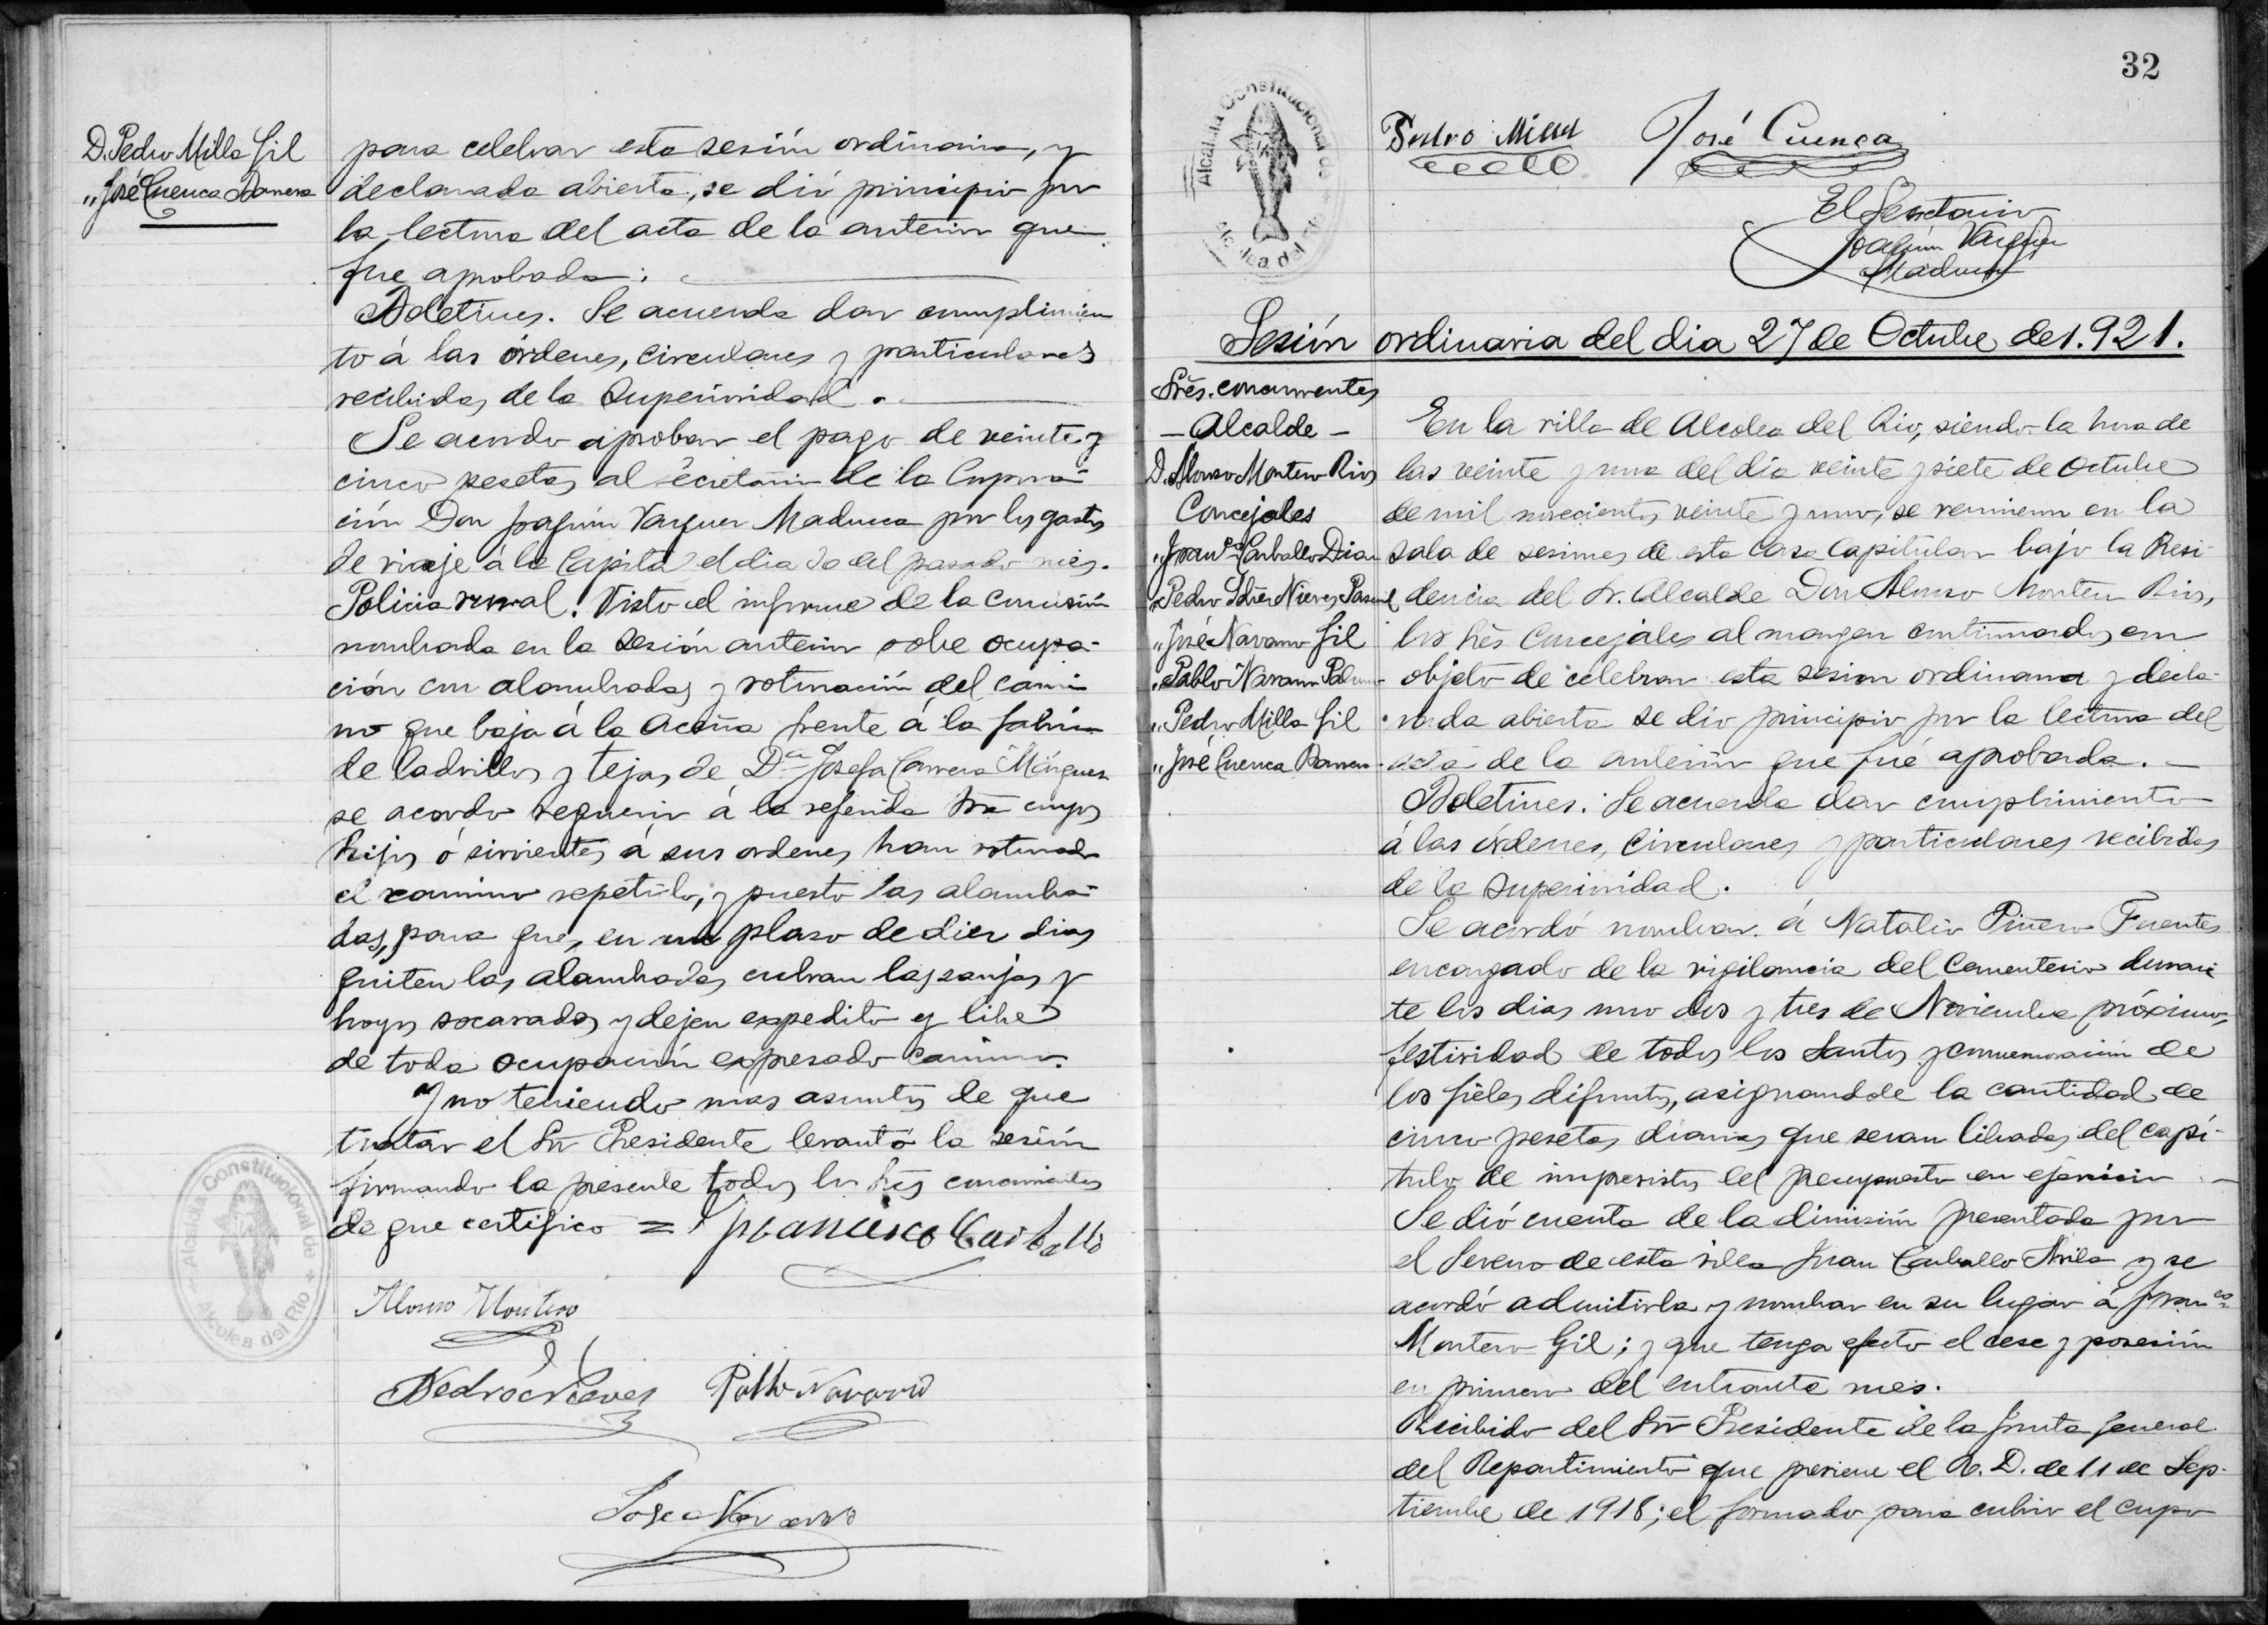 D. Pedro Milla Gil
„ José Cuenca Barrera
para celebrar esta sesión ordinaria, y
declarada abierta, se dió principio por
la lectura del acta de la anterior que
fue aprobada.
Boletines. Se acuerda dar cumplimien
to á las órdenes, circulares y particulares
recibidas de la Superioridad.
Se acordo aprobar el pago de veinte y
cinco pesetas al secretario de la Corpora-
ción Don Joaquín Vazquez Madueca por los gastos
de viaje á la Capital el dia 20 del pasado mes.
Policia rural. Visto el informe de la Comisión
nombrada en la sesión anterior sobre ocupa-
ción con alambradas y roturación del cami
no que baja á la Aceña frente á la fabrica
de ladrillos y tejas de Dª Josefa Carrera Mínguez
se acordo requerir á la referida Srª cuyos
hijos ó sirvientes á sus ordenes han roturado
el camino repetido, y puesto las alambra-
das, para que, en un plaso de diez dias
quiten las alambradas cubran las zanjas y
hoyos socavados y dejen expedito y libre
de toda ocupación expresado camino.
Y no teniendo mas asuntos de que
tratar el Sr Presidente levantó la sesión
firmando la presente todos los Srs concurrentes
de que certifico = Francisco Carballo
Alonso Montero
Pedro Nieves Pablo Navarro
Jose Navarro
Alcaldia Constitucional de
Alcolea del Rio
32
Alcaldia Constitucional de
Alcolea del Rio
Pedro Milla José Cuenca
El Secretario
Joaquín Vazquez
Madueca
Sesión ordinaria del dia 27 de Octubre de 1.921.
Srēs. concurrentes
- Alcalde -
D. Alonso Montero Rios
Concejales
„ Franco Carballo Diaz
„ Pedro Nieves
„ José Navarro Gil
„ Pablo Navarro
„ Pedro Milla Gil
„ José Cuenca Barrera
En la villa de Alcolea del Rio, siendo la hora de
las veinte y una del dia veinte y siete de Octubre
de mil novecientos veinte y uno, se reunieron en la
sala de sesiones de esta Casa Capitular bajo la Presi-
dencia del Sr. Alcalde Don Alonso Montero Rios,
los Srēs Concejales al margen continuados con
objeto de celebrar esta sesion ordinaria y decla-
rada abierta se dio principio por la lectura del
acta de la anterior que fué aprobada.
Boletines. Se acuerda dar cumplimiento
á las órdenes, circulares y particulares recibidas
de la superioridad.
Se acordó nombrar á Natalio Piñero Fuentes
encargado de la vigilancia del Cementerio duran
te los dias uno dos y tres de Noviembre próximo,
festividad de todos los Santos y conmemoración de
los fieles difuntos, asignandole la cantidad de
cinco pesetas diarias que seran libradas del capi-
tulo de imprevistos del presupuesto en ejercicio.
Se dió cuenta de la dimisión presentada por
el Sereno de esta villa Juan Carballo Avila y se
acordó admitirla y nombrar en su lugar á Franco
Montero Gil; y que tenga efecto el cese y posesión
en primero del entrante mes.
Recibido del Sr Presidente de la Junta general
del Repartimiento que previene el R. D. de 11 de Sep-
tiembre de 1918; el formado para cubrir el cupo